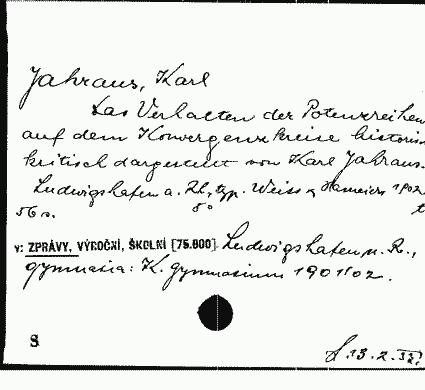 Jahraus, Karl
Das Verhalten der Potenzreihen
auf dem Konvergenzkreise historisch
kritisch dargestellt von Karl Jahraus.
Ludwigshafen a. Rh., typ. Weiss & Hameier 1902
56 s. 8°
v: ZPRÁVY, VÝROČNÍ, ŠKOLNÍ [75.800] Ludwigshafen a. R.,
gymnasia: K. gymnasium 1901/02.
S
13.2.32.